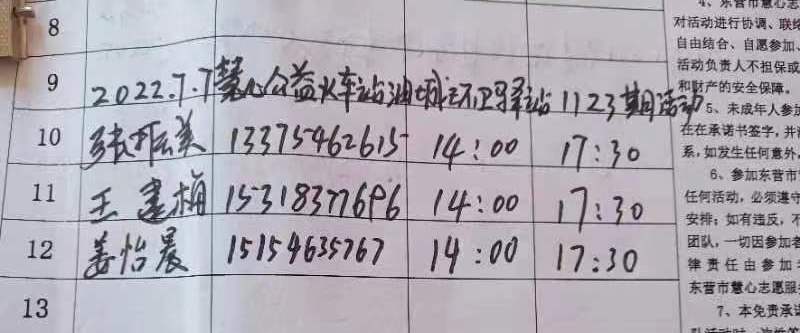 8
9 2022.7.7慧心公益火车站油城环卫驿站1123期活动
10 张振美 13375462615 14:00 17:30
11 王建梅 15318377696 14:00 17:30
12 姜怡晨 15154635767 14:00 17:30
13
4、东营市慧心志
对活动进行协调、联络
自由结合、自愿参加、
活动负责人不担保或
和财产的安全保障。
5、未成年人参加
在在承诺书签字，并
系，如发生任何意外，
6、参加东营市
任何活动，必须遵守
安排；如有违反，不
团队，一切因参加者
律责任由参加者
东营市慧心志愿服务
7、本免责承诺